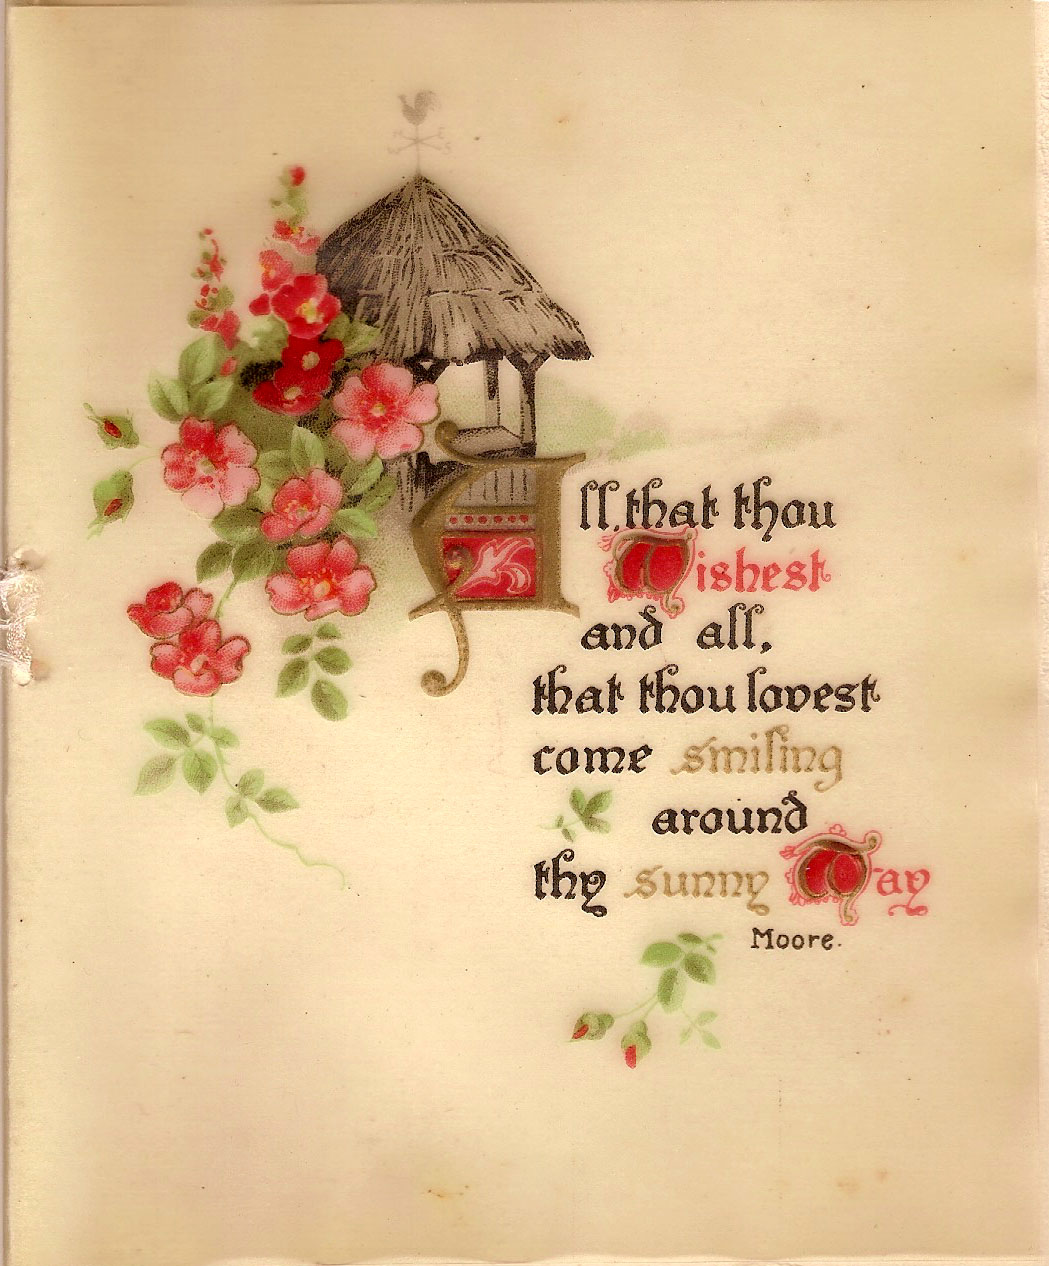 All that thou
Wishest
and all,
that thou lovest
come smiling
around
thy sunny Way
Moore.